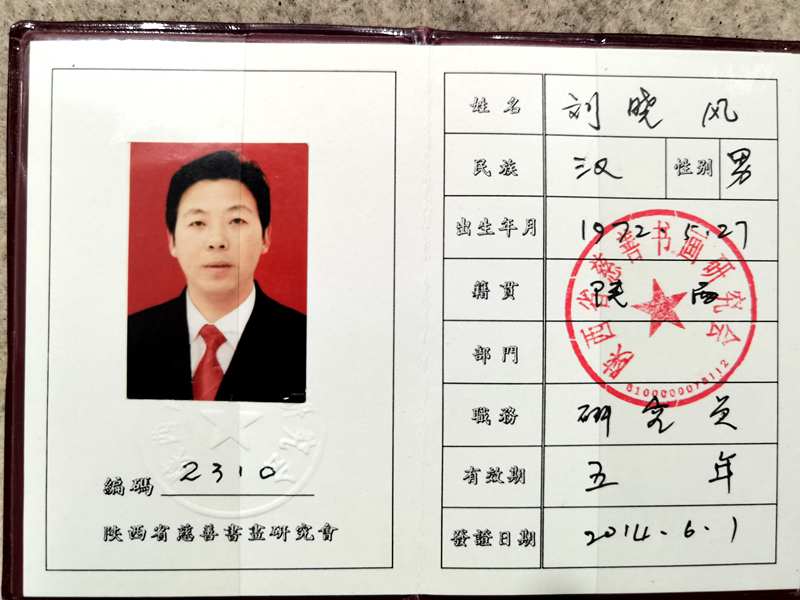 编碼 2310
陕西省慈善書畫研究會
姓名 刘晓风
民族 汉 性别 男
出生年月 1972.5.27
籍贯 陕西
部門
職務 研究员
有效期 五年
發證日期 2014.6.1
陕西省慈善书画研究会